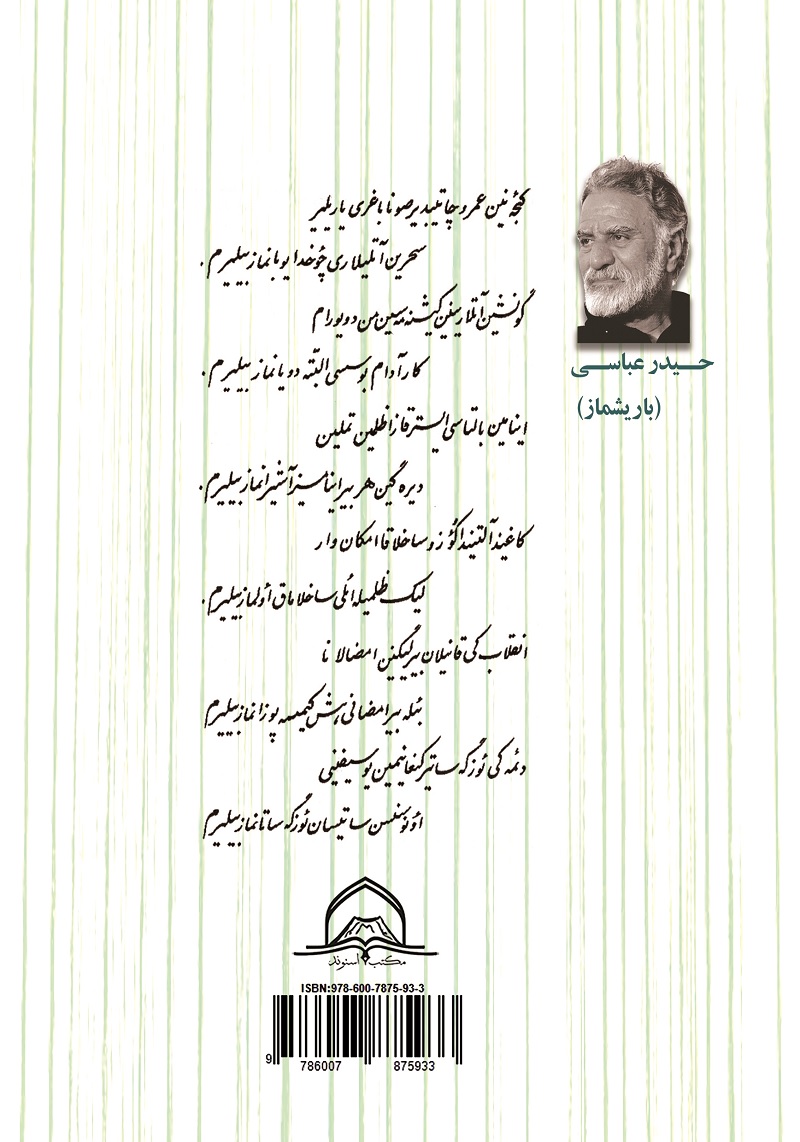 گئجه‌نین عمرو چاتیبدیر صونا باغری یاریلیر
سحرین آتلیلاری چوخدا یوبانماز بیلیرم.
گونشین آتلارینین کیشنه‌ییسین من دویورام
کار آدام بو سسی البتّه دویانماز بیلیرم.
اینامین بالتاسی ایستر قازا ظلمین تملین
دیره‌گین هر بیر اینامسیز آشیرانماز بیلیرم.
کاغیذ آلتیندا گؤزو ساخلاقا امکان وار
لیک ظلمیله ائلی ساخلاماق اولماز بیلیرم.
انقلاب کی قانیلان بیرلیگینین امضالانا
بئله بیر امضانی، هئش کیمسه پوزانماز بیلیرم
دئمه کی ئوزگه ساتیر کنعانیمین یوسیفینی
اؤنو سنسن ساتیسان ئوزگه ساتانماز بیلیرم
حیدر عباسی
(باریشماز)
مکتب اسنوند
ISBN:978-600-7875-93-3
9 786007 875933